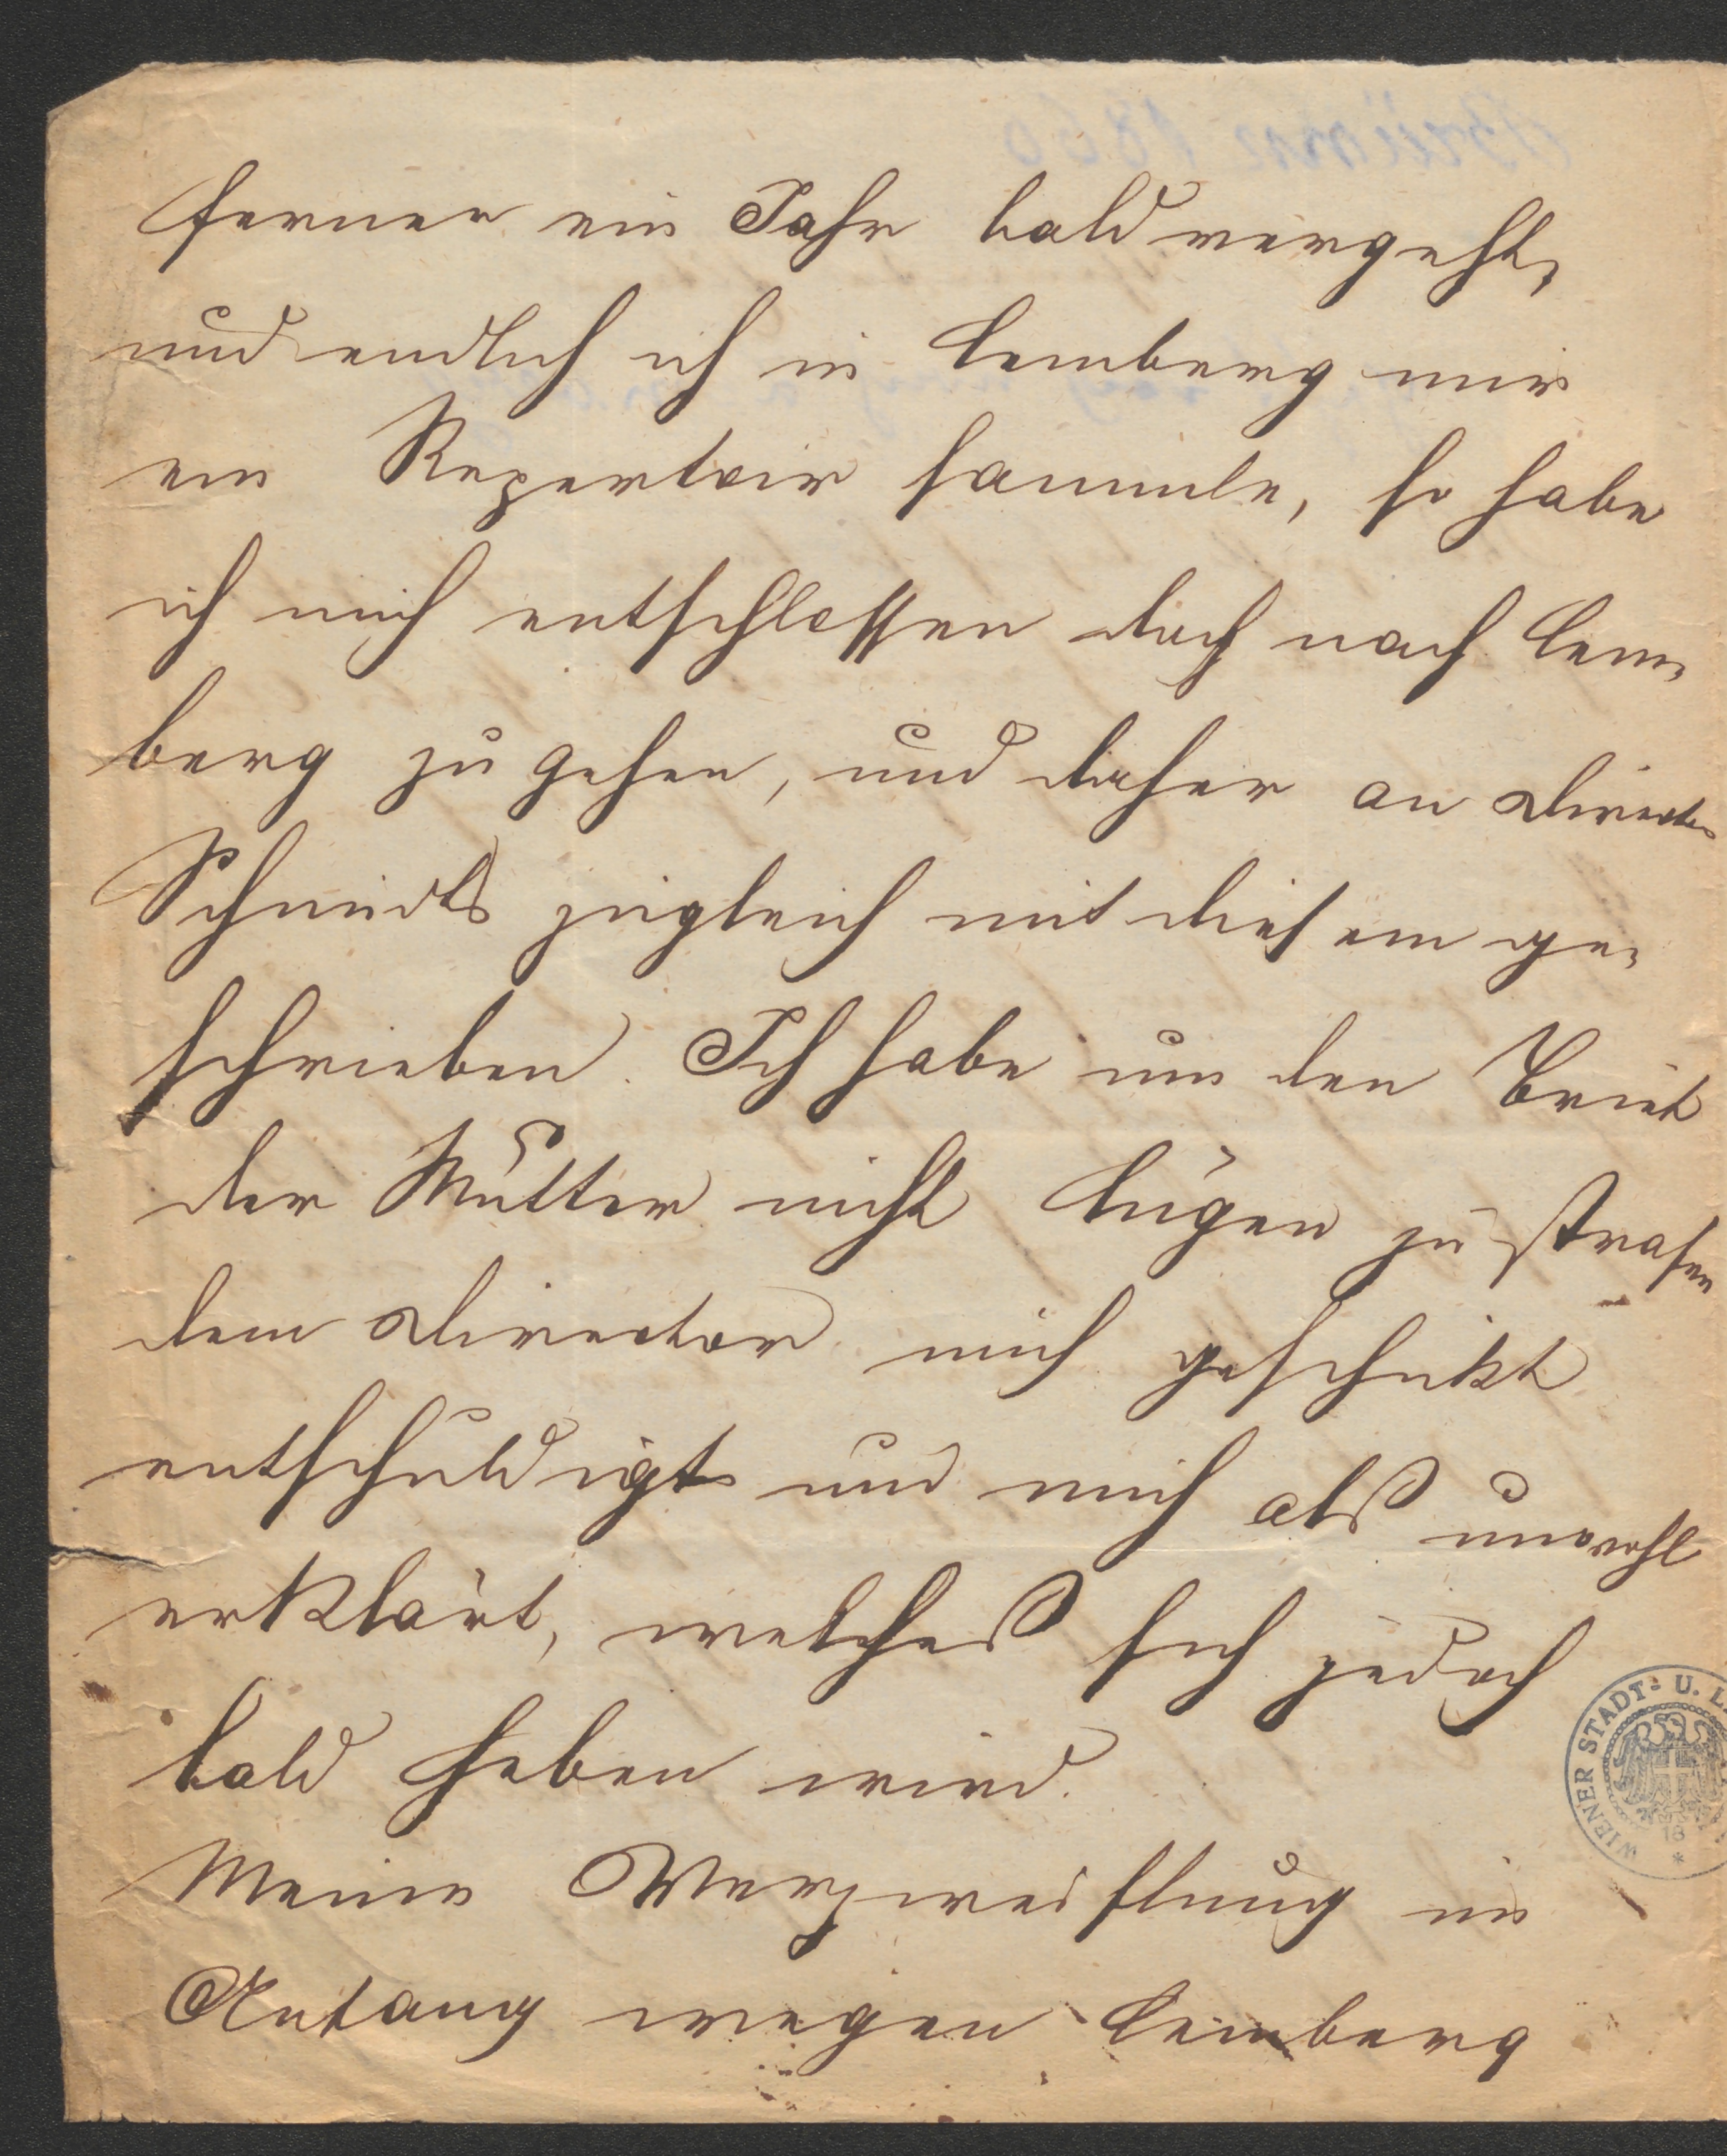 ferner ein Jahr bald vergeht,
und endlich ich in Lemberg mir
ein Repertoir sammle, so habe
ich mich entschlossen doch nach Lem-
berg zu gehen, und daher an Director
Schmidts zugleich mit diesem ge-
schrieben. Ich habe um den Brief
der Mutter nicht Lügen zu strafen
dem Director mich geschikt
entschuldigt und mich als unwohl
erklärt, welches sich jedoch
bald heben wird.
Meine Verzweiflung im
Anfang wegen Lemberg
WIENER STADT- U. L
18